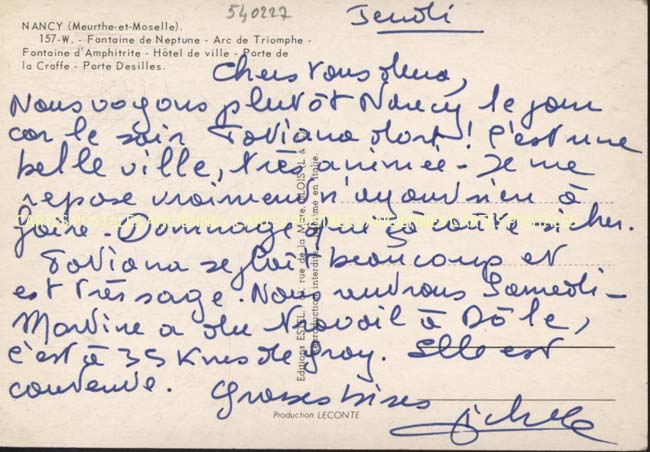 540227
Jeudi
NANCY (Meurthe-et-Moselle).
157-W. - Fontaine de Neptune - Arc de Triomphe -
Fontaine d'Amphitrite - Hôtel de ville - Porte de
la Craffe - Porte Desilles.
Chers tous deux,
Nous voyons plutôt Nancy le jour
car le soir Tatiana dort! C'est une
belle ville, très animée - Je me
repose vraiment n'ayant rien à
faire - Dommage que ça coûte si cher.
Tatiana se plaît beaucoup et
est très sage. Nous rentrons Samedi -
Martine a du travail à Dôle,
c'est à 35 Kms de Gray. Elle est
contente. Grosses bises
Editions ESTEL, rue de la Mare, BLOIS
Reproduction interdite. Imprimé en Italie.
Production LECONTE